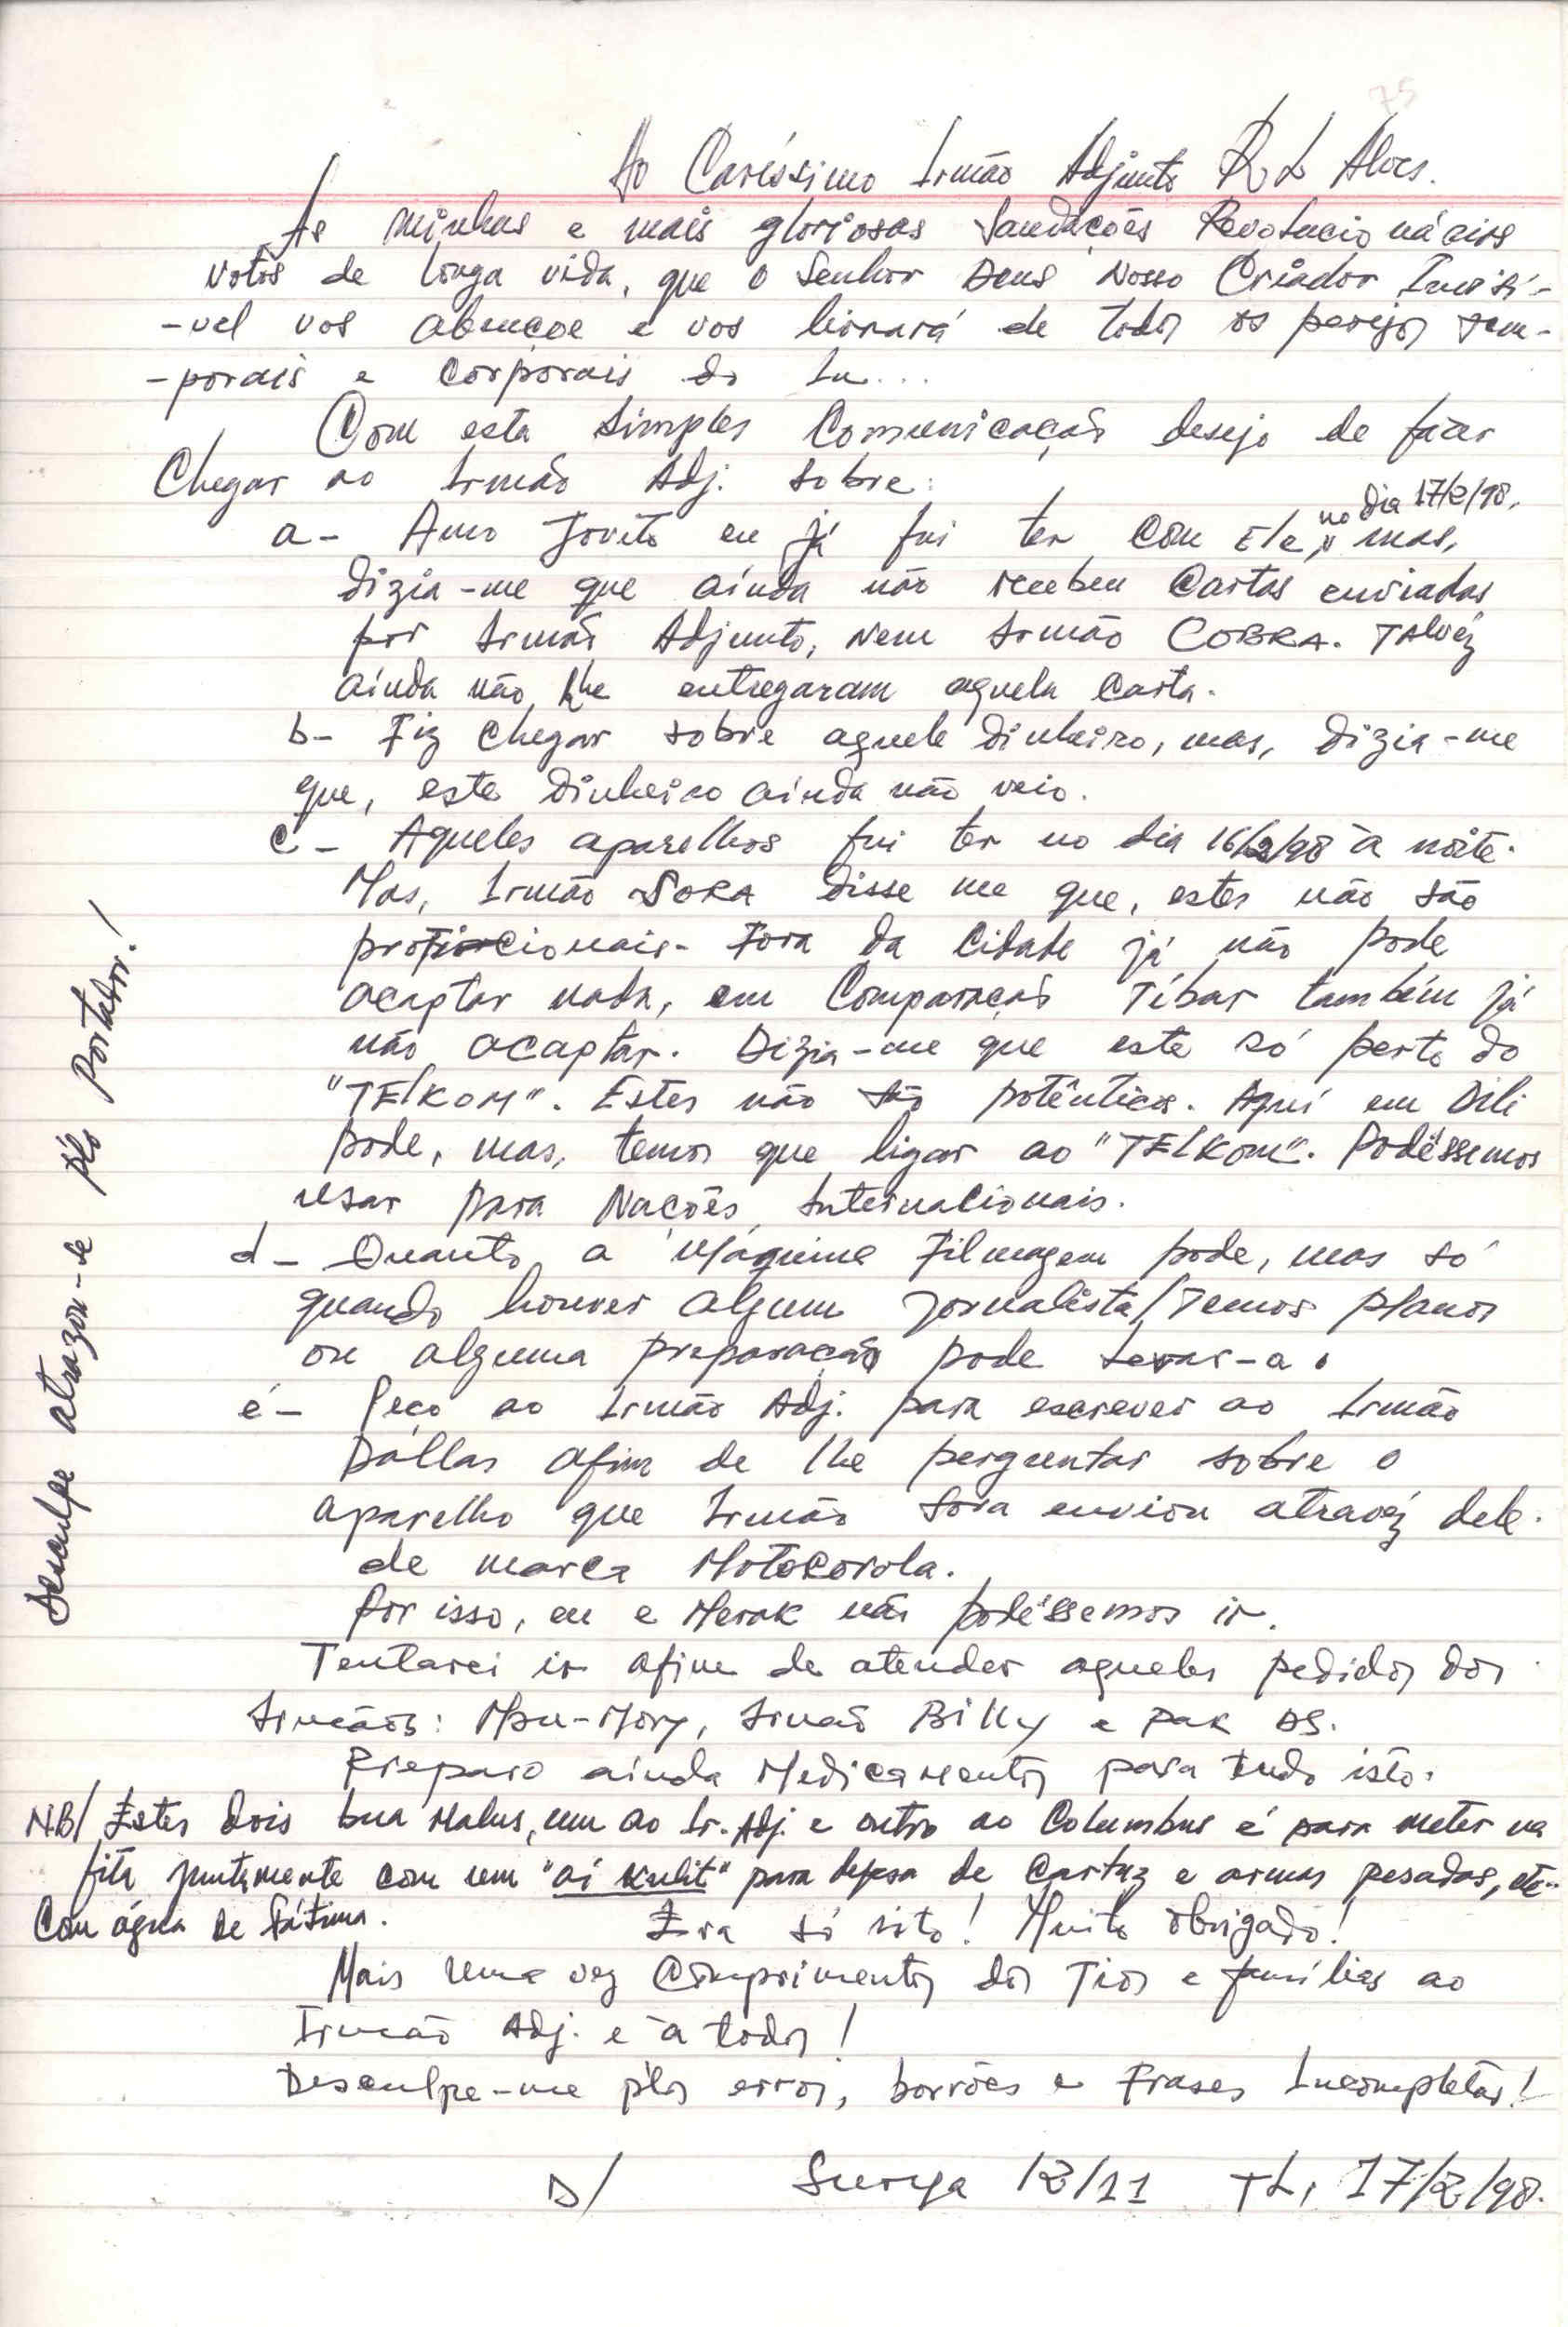 75
Ao Caríssimo Irmão Adjunto R. L Alves.
As minhas e mais gloriosas Saudações Revolucionários
votos de longa vida, que o Senhor Deus Nosso Criador Invisí-
-vel vos abençoe e vos livrará de todos os perigos tem-
-porais e Corporais do In...
Com esta simples Comunicação desejo de fazer
Chegar ao Irmão Adj. sobre:
a- Amo Jovito eu já fui ter com Ele, no dia 17/2/98, mas,
dizia-me que ainda não recebeu Cartas enviadas
por Irmão Adjunto, nem Irmão COBRA. TAlvéz
ainda não lhe entregaram aquela Carta.
b- Fiz chegar sobre aquele dinheiro, mas, dizia-me
que, este dinheiro ainda não veio.
c- Aqueles aparelhos fui ter no dia 16/2/98 à noite.
Mas, Irmão SORA disse me que, estes não são
-cionais. Fora da Cidade já não pode
acaptar nada, em Comparação Tíbar também já
não acaptar. Dizia-me que este só perto do
"TElKOM". Estes não são potênticos. Aquí em Dili
pode, mas, temos que ligar ao "TElKom". Podéssemos
usar para Nações Internacionais.
d- Quanto a Máquina Filmagem pode, mas só
quando houver algum jornalista/Temos planos
ou alguma preparação pode levar-a.
é- Peço ao Irmão Adj. para escrever ao Irmão
Dallas afim de lhe perguntar sobre o
aparelho que Irmão Sora enviou atravéz dele.
de marca Motocorola.
Por isso, eu e Merak não podéssemos ir.
Tentarei ir afim de atender aqueles pedidos dos
Irmãos: Mau-Mory, Irmão Billy e pak AS.
Preparo ainda Medicamentos para tudo isto.
N.B/ Estes dois bua Malus, um ao Ir. Adj. e outro ao Columbus é para meter na
fita juntamente com um "ai kulit" para defesa de Cartuz e armas pesadas, etc..
Com água de Fátima.
Era só isto! Muito Obrigado!
Mais uma vez Comprimentos dos Tios e famílias ao
Irmão Adj. e à todos!
Desculpe-me p'los erros, borrões e Frases Incompletas!
D/ Surya 12/11 TL, 17/2/98.
Desculpe atrazou-se p'lo Portador!